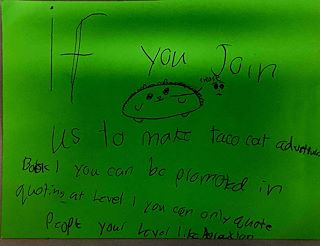 If
you Join
us to make taco cat
Book 1 you can be promoted in
quoting at Level 1 you can only quote
People your Level like